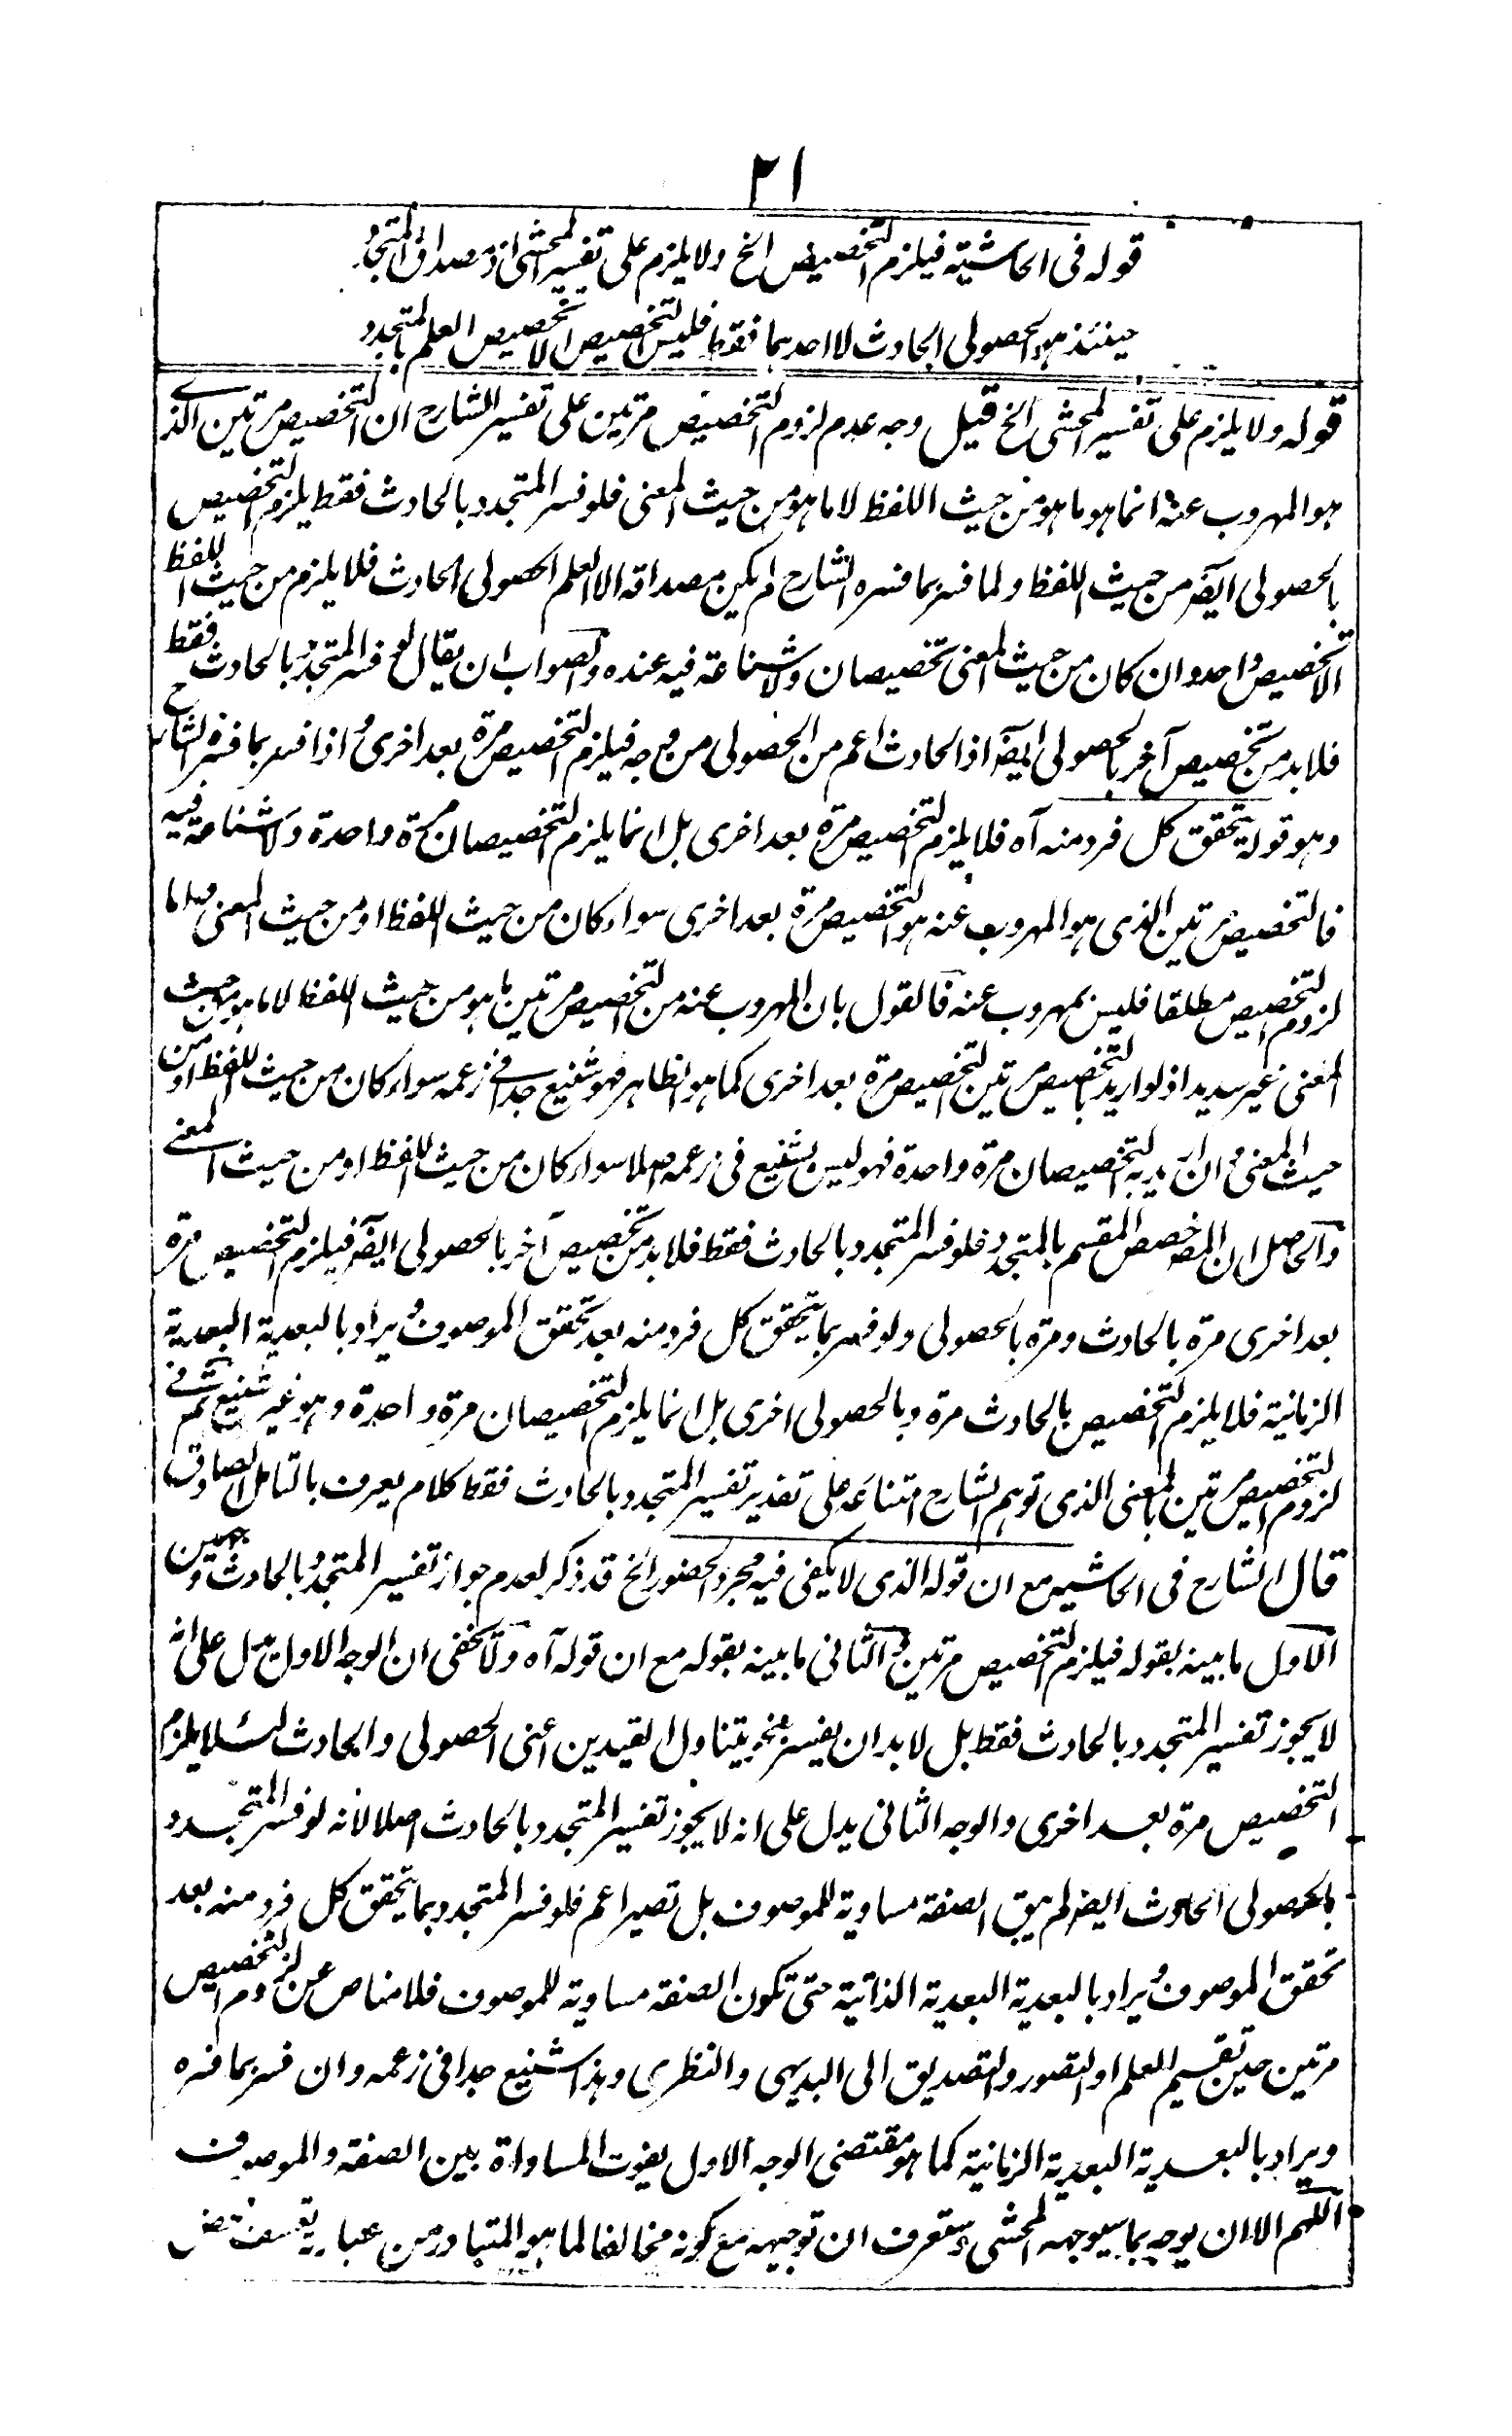 ٢١
قوله فى الحاشية فيلزم التخصيص الخ ولا يلزم على تفسير المحشى اذ مصداق المتجدد
حينئذ هو الحصولى الحادث لا احدهما فقط فليس التخصيص الا تخصيص العلم بالمتجدد
قوله ولا يلزم على تفسير المحشى الخ قيل وجه عدم لزوم التخصيص مرتين على تفسير الشارح ان التخصيص مرتين الذى
هو المهروب عنه انما هو ما هو من حيث اللفظ لا ما هو من حيث المعنى فلو فسر المتجدد بالحادث فقط يلزم التخصيص
بالحصولى ايضا من حيث اللفظ ولما فسر بما فسره الشارح لم يكن مصداقه الا العلم الحصولى الحادث فلا يلزم من حيث اللفظ
الا تخصيص واحد وان كان من حيث المعنى تخصيصان ولا شناعة فيه عنده والصواب ان يقال لو فسر المتجدد بالحادث فقط
فلا بد من تخصيص آخر بالحصولى ايضا اذ الحادث اعم من الحصولى من وجه فيلزم التخصيص مرة بعد اخرى واذا فسر بما فسره الشارح
وهو قوله يتحقق كل فرد منه آه فلا يلزم التخصيص مرة بعد اخرى بل انما يلزم التخصيصان مرة واحدة ولا شناعة فيه
فالتخصيص مرتين الذى هو المهروب عنه هو التخصيص مرة بعد اخرى سواء كان من حيث اللفظ او من حيث المعنى واما
لزوم التخصيص مطلقا فليس بمهروب عنه فالقول بان المهروب عنه من التخصيص مرتين ما هو من حيث اللفظ لا ما هو من حيث
المعنى غير سديد اذ لو اريد بالتخصيص مرتين التخصيص مرة بعد اخرى كما هو الظاهر فهو شنيع جدا فى زعمه سواء كان من حيث اللفظ او من
حيث المعنى وان اريد به التخصيصان مرة واحدة فهو ليس بشنيع فى زعمه اصلا سواء كان من حيث اللفظ او من حيث المعنى
والحاصل ان المص خصص المقسم بالمتجدد فلو فسر المتجدد بالحادث فقط فلا بد من تخصيص آخر بالحصولى ايضا فيلزم التخصيص مرة
بعد اخرى مرة بالحادث ومرة بالحصولى ولو فسر بما يتحقق كل فرد منه بعد تحقق الموصوف ويراد بالبعدية البعدية
الزمانية فلا يلزم التخصيص بالحادث مرة وبالحصولى اخرى بل انما يلزم التخصيصان مرة واحدة وهو غير شنيع ثم فى
لزوم التخصيص مرتين بالمعنى الذى توهم الشارح امتناعه على تقدير تفسير المتجدد بالحادث فقط كلام يعرف بالتامل الصادق
قال الشارح فى الحاشيه مع ان قوله الذى لا يكفى فيه مجرد الحضور الخ قد ذكر لعدم جواز تفسير المتجدد بالحادث وجهين
الاول ما بينه بقوله فيلزم التخصيص مرتين والثانى ما بينه بقوله مع ان قوله آه ولا يخفى ان الوجه الاول يدل على انه
لا يجوز تفسير المتجدد بالحادث فقط بل لا بد ان يفسر بنحو يتناول القيدين اعنى الحصولى والحادث لئلا يلزم
التخصيص مرة بعد اخرى والوجه الثانى يدل على انه لا يجوز تفسير المتجدد بالحادث اصلا لانه لو فسر المتجدد
بالحصولى الحادث ايضا لم يبق الصفة مساوية للموصوف بل تصير اعم فلو فسر المتجدد بما يتحقق كل فرد منه بعد
تحقق الموصوف ويراد بالبعدية البعدية الذاتية حتى تكون الصفة مساوية للموصوف فلا مناص عن لزوم التخصيص
مرتين حين تقسيم العلم او التصور والتصديق الى البديهى والنظرى وهذا شنيع جدا فى زعمه وان فسر بما فسره
ويراد بالبعدية البعدية الزمانية كما هو مقتضى الوجه الاول يفوت المساواة بين الصفة والموصوف
اللهم الا ان يوجه بما سيوجهه المحشى وستعرف ان توجيهه مع كونه مخالفا لما هو المتبادر من عبارته تعسف محض